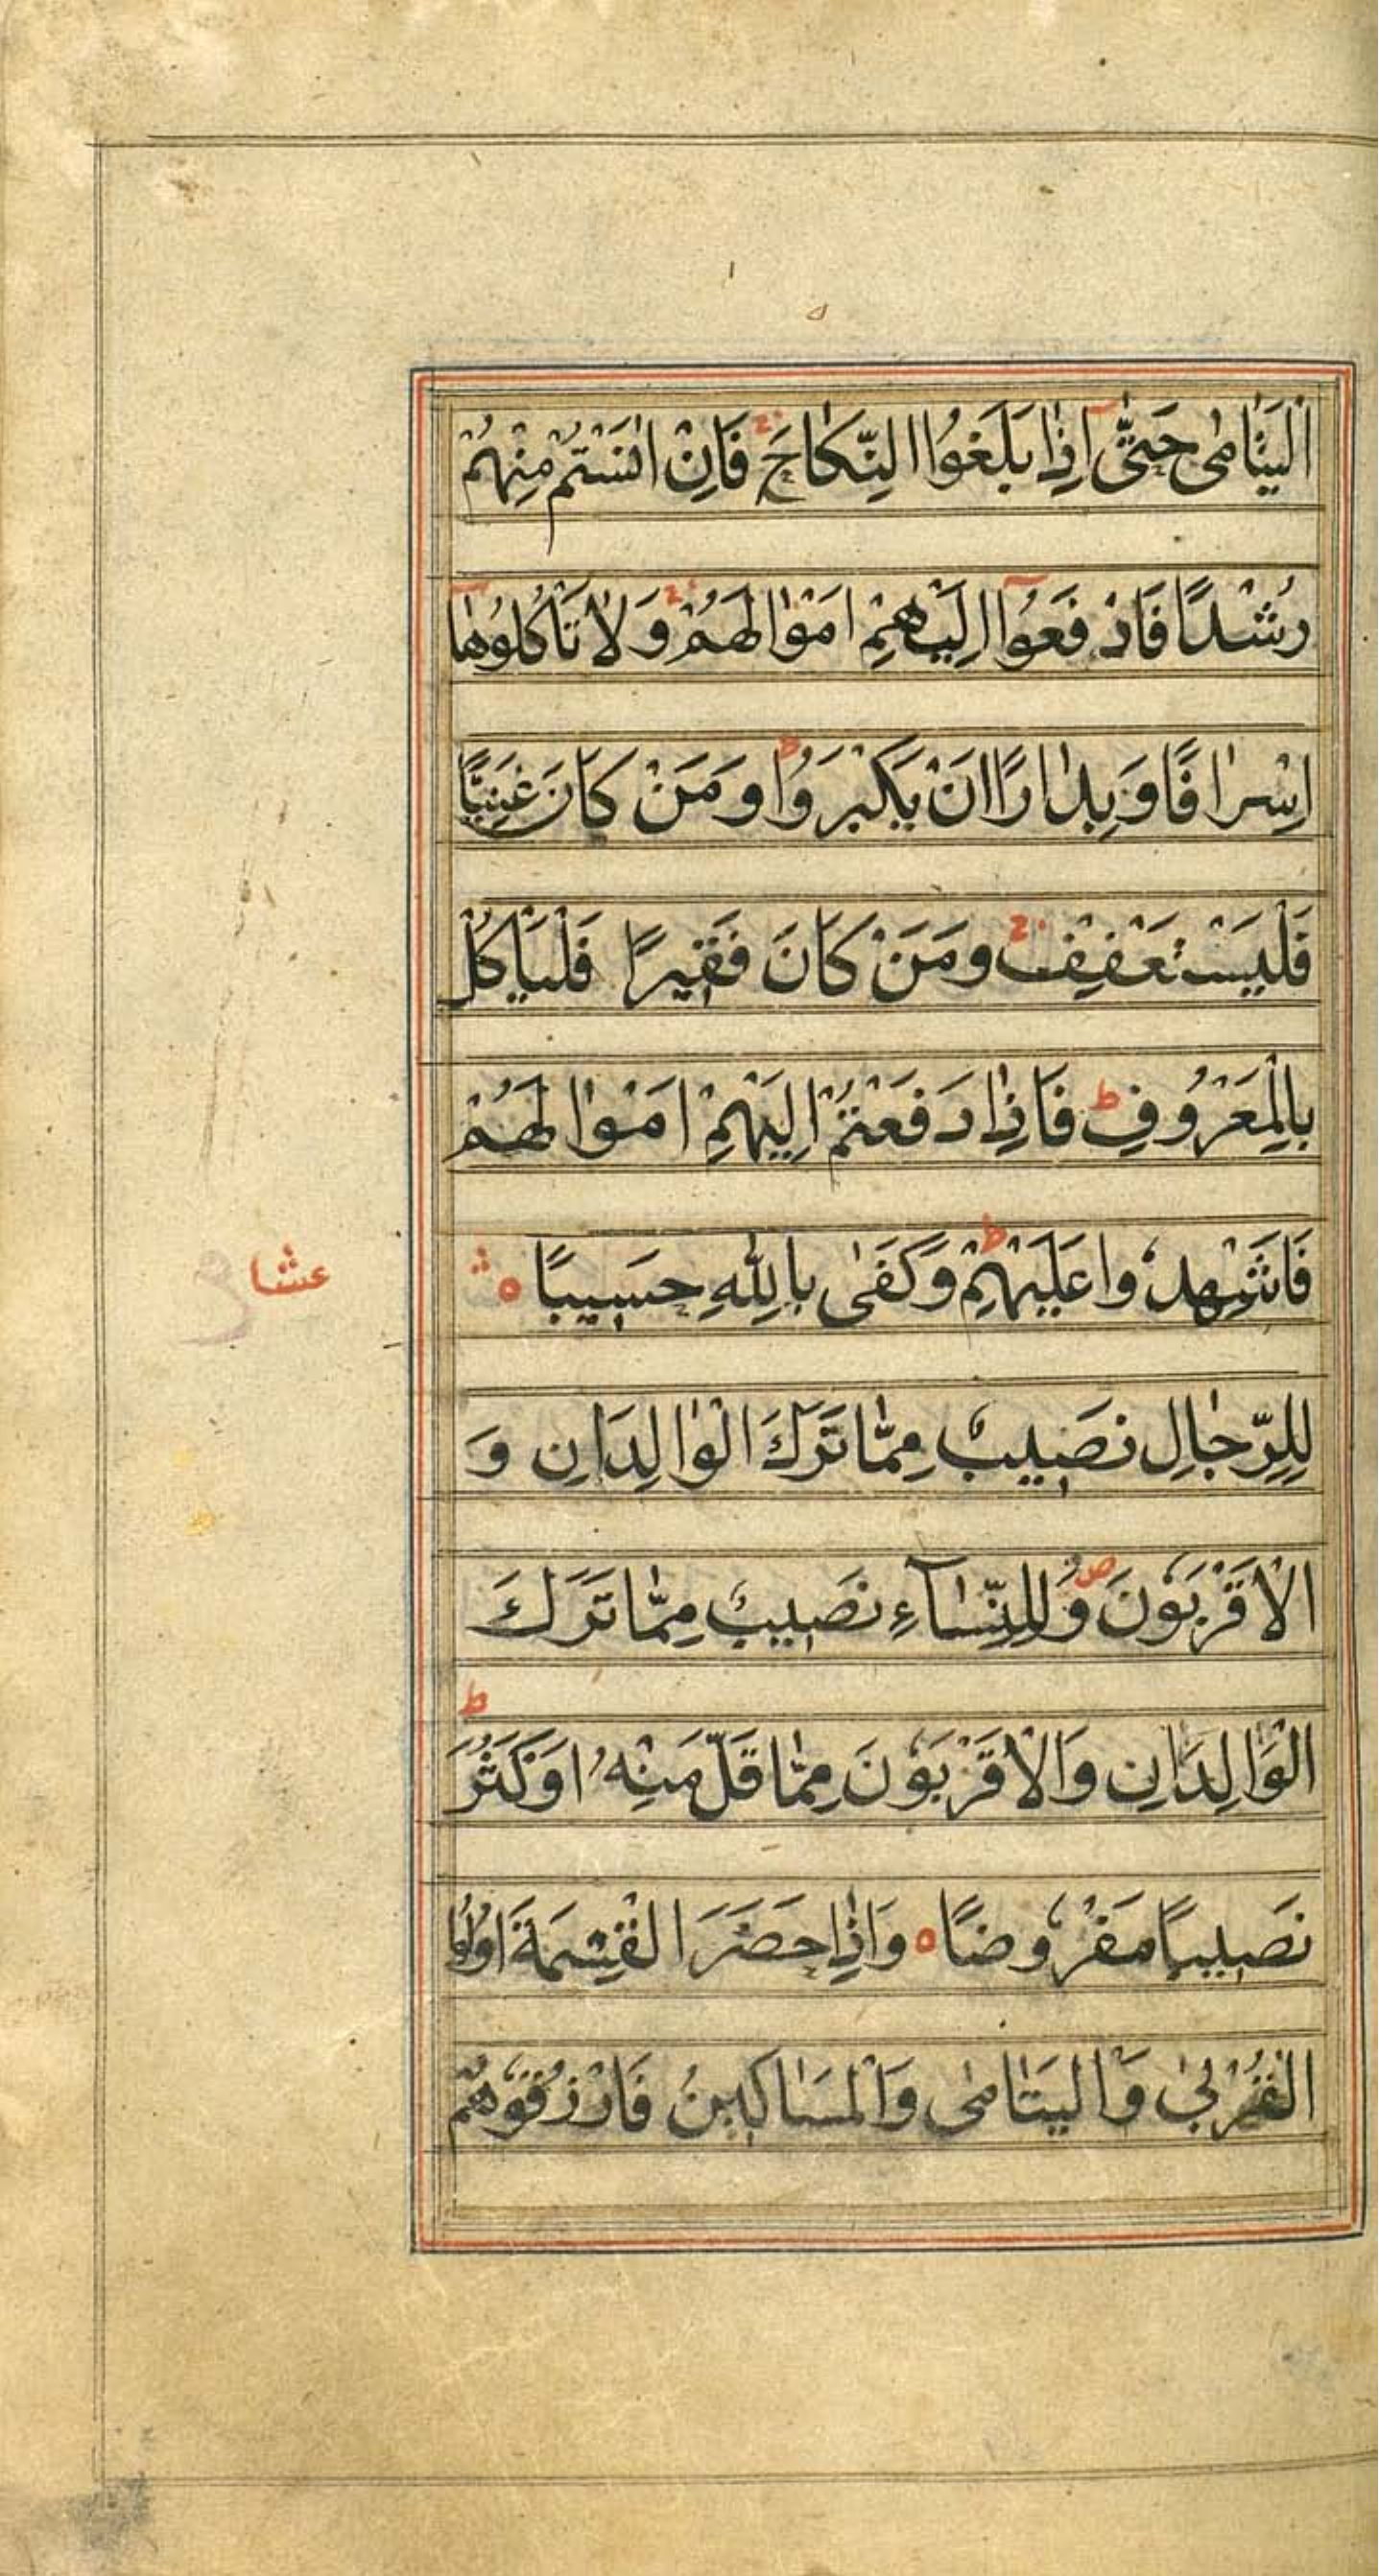 الْيَتَامٰى حَتّٰٓى اِذَا بَلَغُوا النِّكَاحَ ۚ فَاِنْ اٰنَسْتُمْ مِنْهُمْ
رُشْدًا فَادْفَعُوٓا اِلَيْهِمْ اَمْوَالَهُمْ ۚ وَلَا تَأْكُلُوهَٓا
اِسْرَافًا وَبِدَارًا اَنْ يَكْبَرُوا ۗ وَمَنْ كَانَ غَنِيًّا
فَلْيَسْتَعْفِفْ ۚ وَمَنْ كَانَ فَقِيرًا فَلْيَأْكُلْ
بِالْمَعْرُوفِ ط فَاِذَا دَفَعْتُمْ اِلَيْهِمْ اَمْوَالَهُمْ
فَاَشْهِدُوا عَلَيْهِمْ ط وَكَفٰى بِاللّٰهِ حَسِيبًا ه
عشا
لِلرِّجَالِ نَصِيبٌ مِمَّا تَرَكَ الْوَالِدَانِ وَ
الْاَقْرَبُونَ ص وَلِلنِّسَآءِ نَصِيبٌ مِمَّا تَرَكَ
الْوَالِدَانِ وَالْاَقْرَبُونَ مِمَّا قَلَّ مِنْهُ اَوْ كَثُرَ ط
نَصِيبًا مَفْرُوضًا ه وَاِذَا حَضَرَ الْقِسْمَةَ اُولُوا
الْقُرْبٰى وَالْيَتَامٰى وَالْمَسَاكِينُ فَارْزُقُوهُمْ